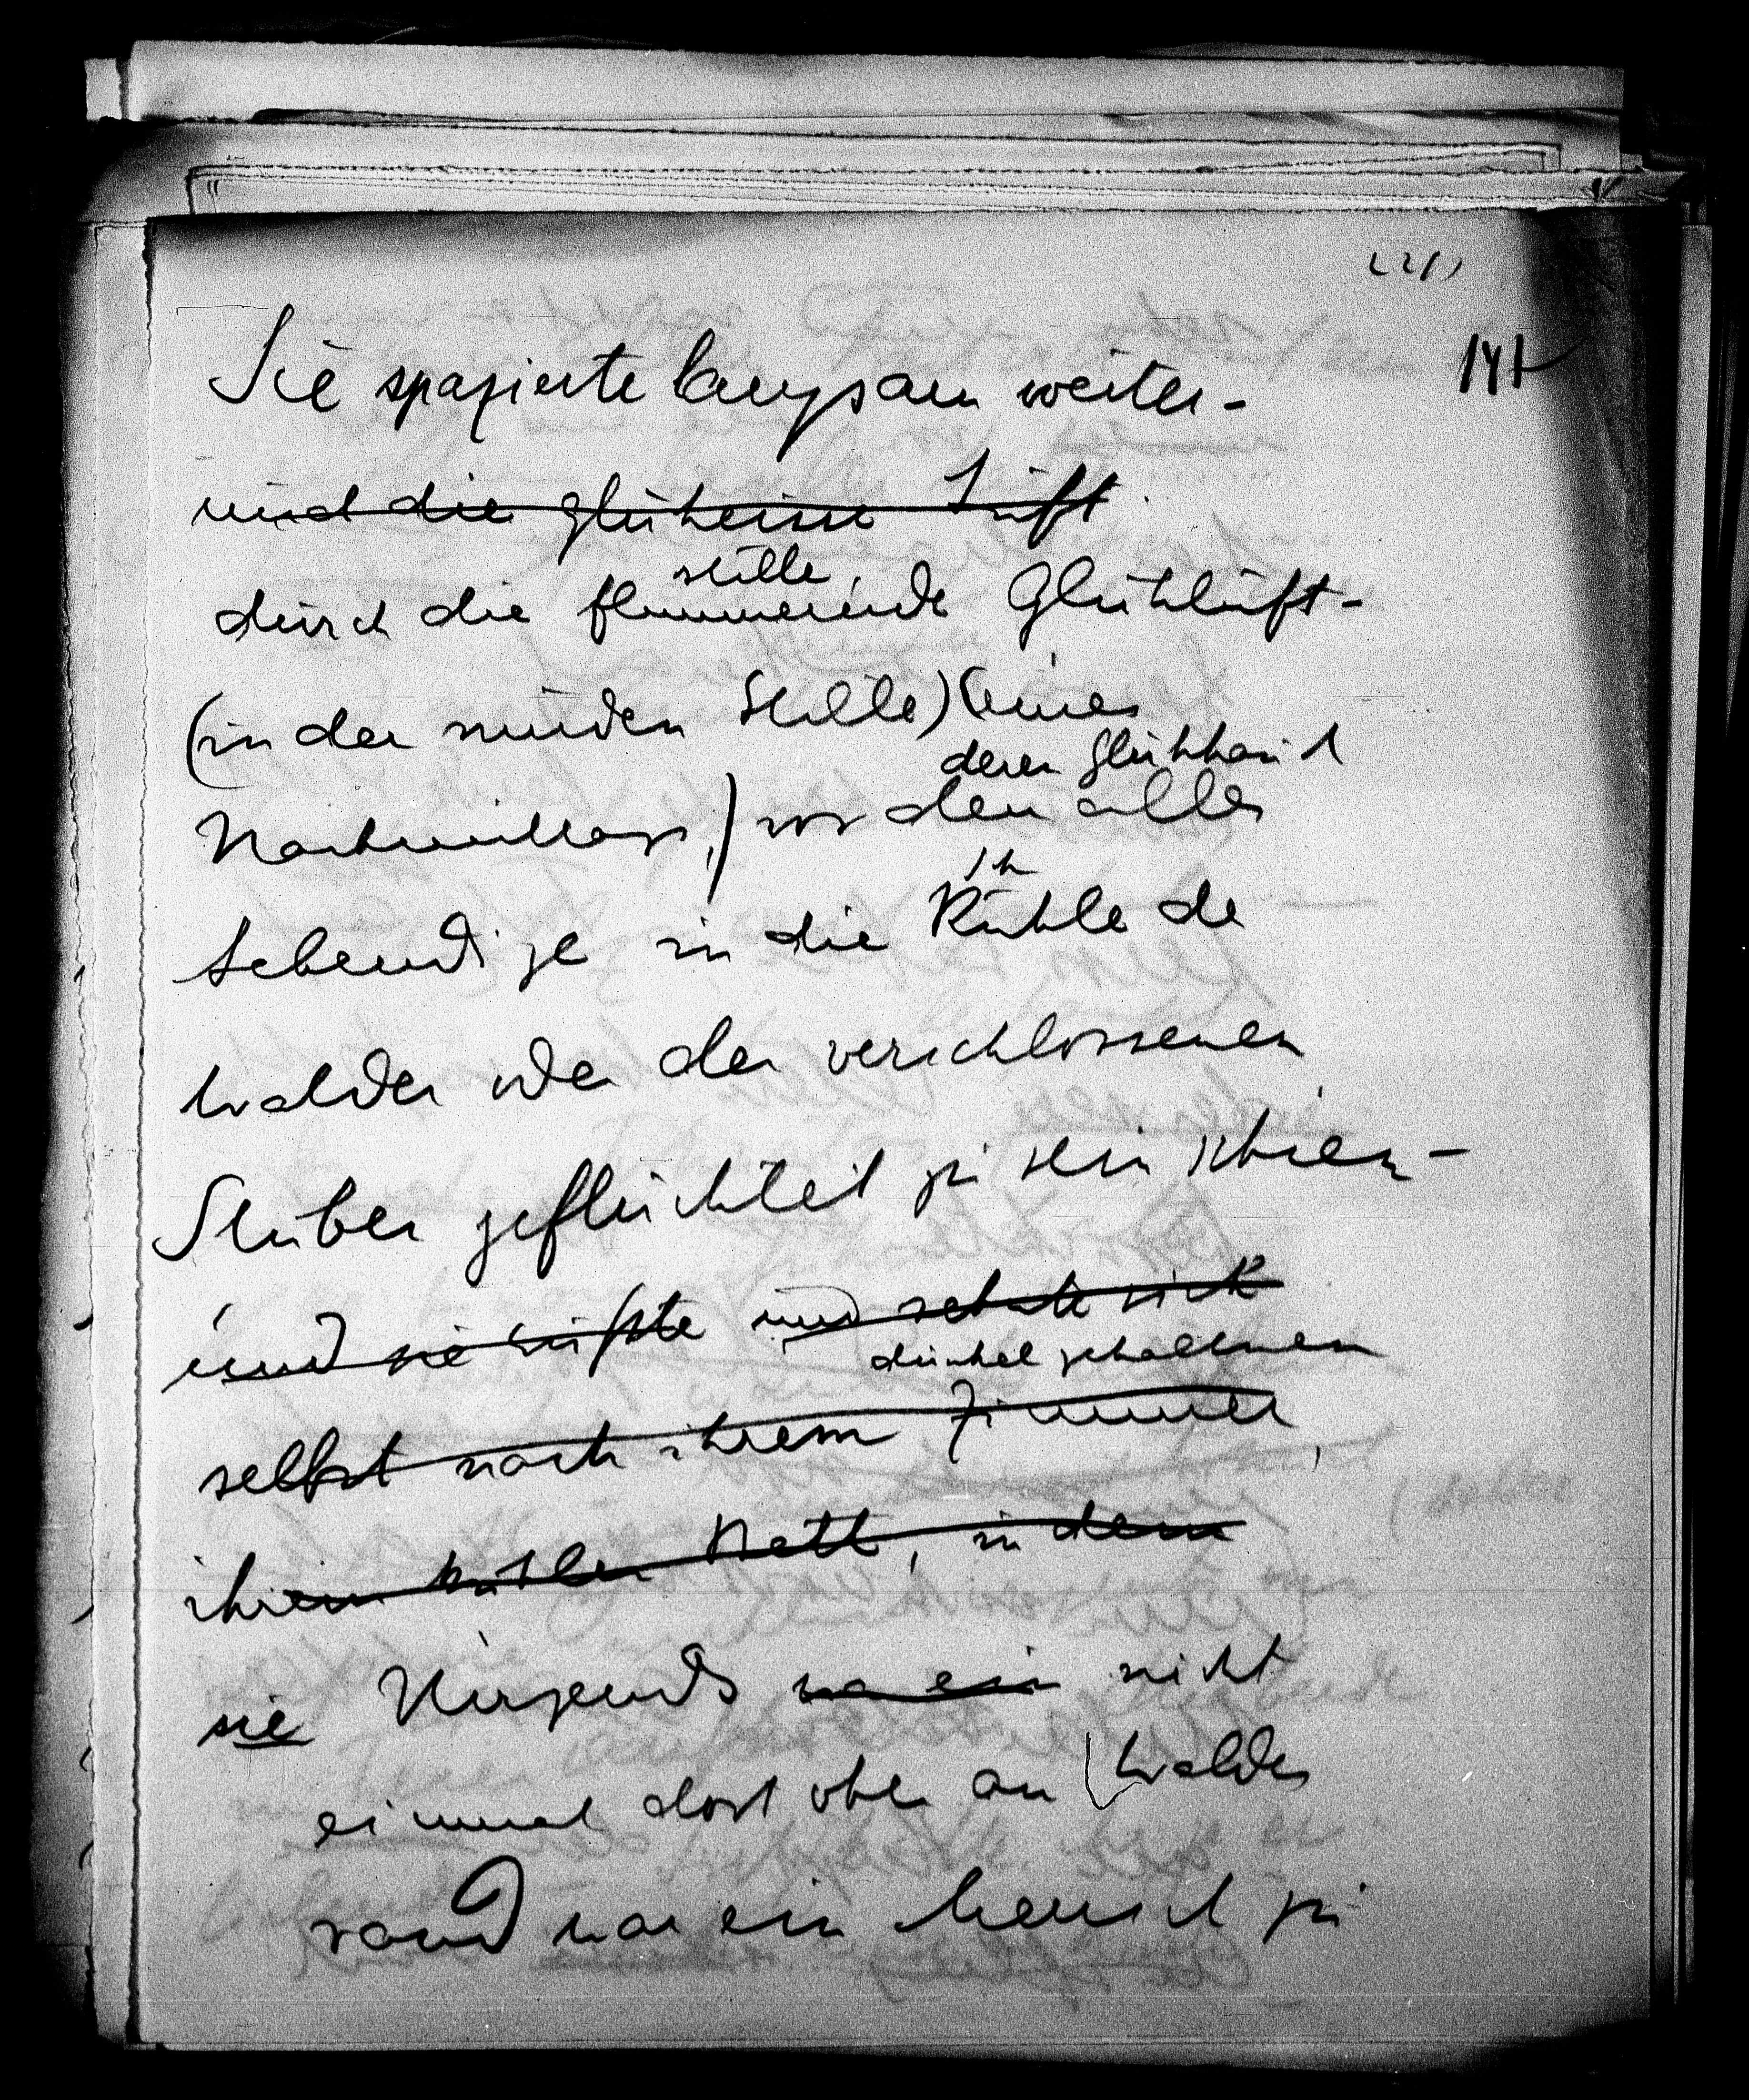 221)
141
Sie spazierte langsam weiter -
und die glühheisse Luft
stille,
durch die flimmernde Glühluft -
(in der müden Stille) (eines
deren Glühhauch
Nachmittags,) vor dem alles
Lebendige in die Kühle der
Wälder oder der verschlossenen
Stuben geflüchtet zu sein schien -
und sie seufzte und sehnte sich
dunkel gehaltenen
selbst nach ihrem Zimmer,
ihrem kühlen Bett, in dem
sie Nirgends war ein nicht
einmal dort oben am Waldes
rand war ein Mensch zu